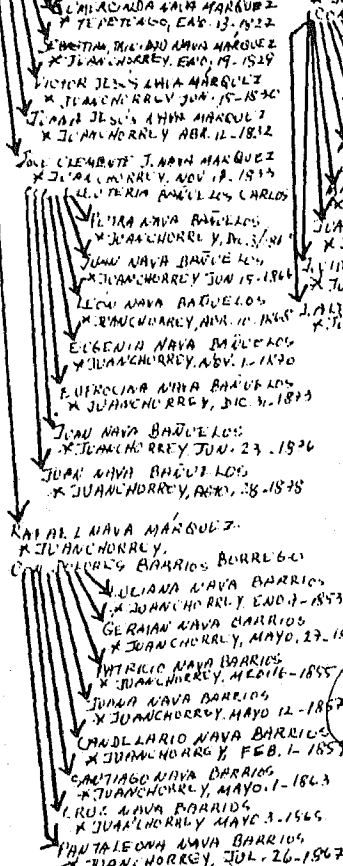 NAVA MÁRQUEZ
* TEPETONGO, ENO. 13-1827
NAVA MÁRQUEZ
* JUANCHORREY, ENO. 19-1829
VICTOR JESÚS NAVA MÁRQUEZ
* JUANCHORREY JUN. 15-1830
JUANA JESÚS NAVA MÁRQUEZ
* JUANCHORREY ABR. 12-1832
JOSÉ CLEMENTE J. NAVA MÁRQUEZ
* JUANCHORREY, NOV
BAÑUELOS CARLOS
PETRA NAVA BAÑUELOS
* JUANCHORREY,
JUAN NAVA BAÑUELOS
* JUANCHORREY JUN 15-1866
LEÓN NAVA BAÑUELOS
* JUANCHORREY, ABR. 10-1868
EUGENIA NAVA BAÑUELOS
* JUANCHORREY, NOV. 1-1870
EUFROCINA NAVA BAÑUELOS
* JUANCHORREY, DIC. 31-1873
JUAN NAVA BAÑUELOS
* JUANCHORREY JUN. 23-1876
JUAN NAVA BAÑUELOS
* JUANCHORREY, 28-1878
RAFAEL NAVA MÁRQUEZ
* JUANCHORREY,
CON DOLORES BARRIOS BORREGO
JULIANA NAVA BARRIOS
* JUANCHORREY. ENO. 7-1853
GERMAN NAVA BARRIOS
* JUANCHORREY, MAYO, 27-18
PATRICIO NAVA BARRIOS
* JUANCHORREY, 16-1855
JUANA NAVA BARRIOS
* JUANCHORREY. MAYO 12-1857
CANDELARIO NAVA BARRIOS
* JUANCHORREY FEB. 1-1859
SANTIAGO NAVA BARRIOS
* JUANCHORREY, MAYO. 1-1863
CRUZ NAVA BARRIOS
* JUANCHORREY MAYO 3-1865
PANTALEONA NAVA BARRIOS
* JUANCHORREY, JUL. 26-1867